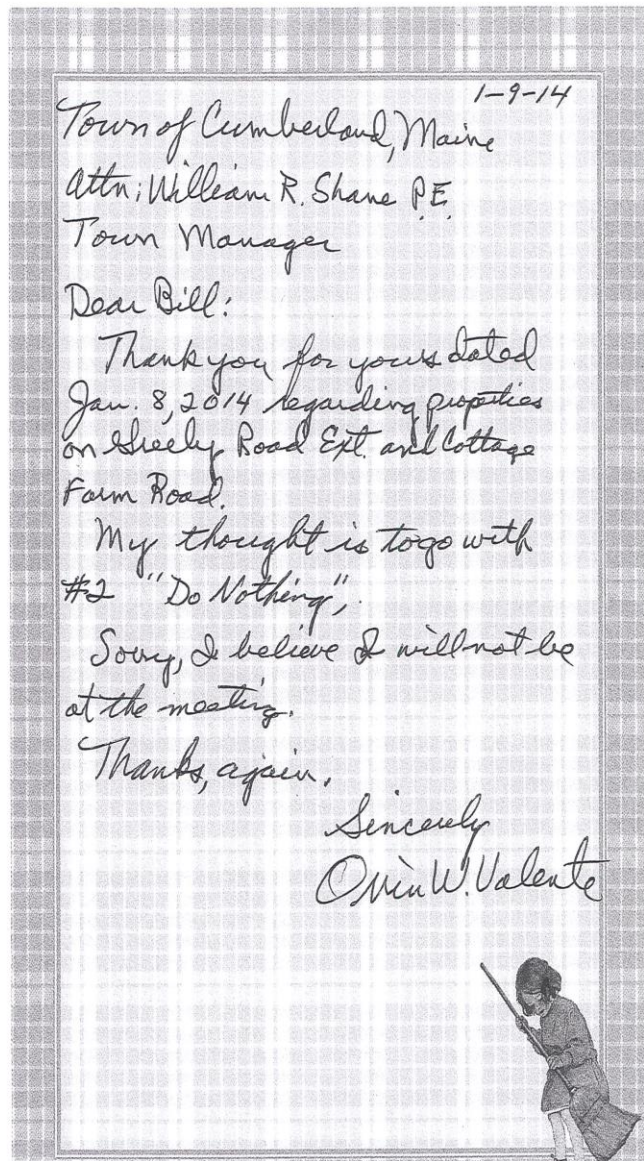 1-9-14
Town of Cumberland, Maine
Attn: William R. Shane P.E.
Town Manager
Dear Bill:
Thank you for yours dated
Jan. 8, 2014 regarding properties
on Greely Road Ext. and Cottage
Farm Road.
My thought is to go with
#2 "Do Nothing",
Sorry, I believe I will not be
at the meeting.
Thanks, again.
Sincerely
Orrin W. Valente